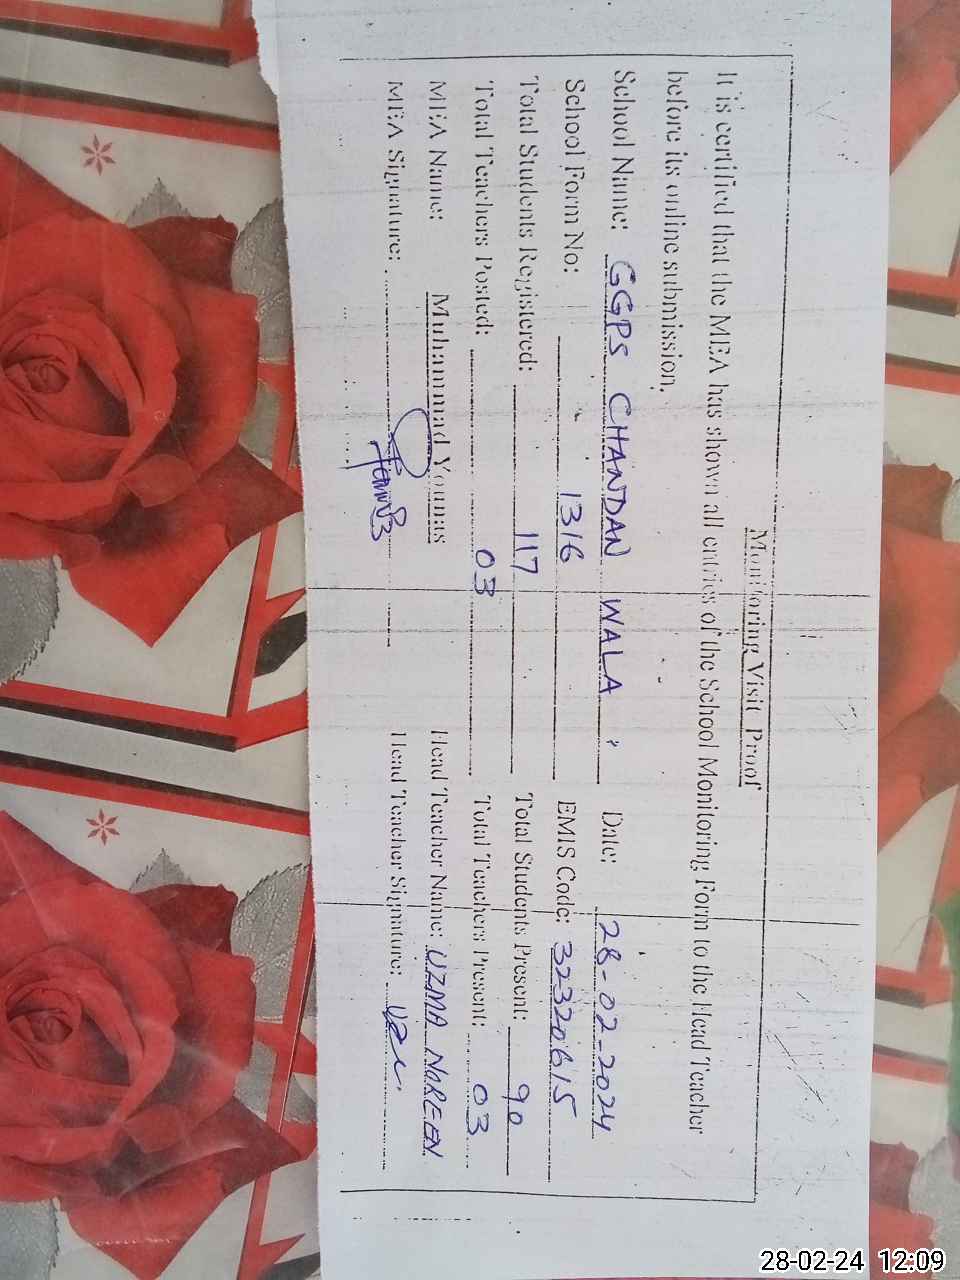 Monitoring Visit Proof
It is certified that the MEA has shown all entries of the School Monitoring Form to the Head Teacher
before its online submission.
School Name: GGPS CHANDAN WALA Date: 28-02-2024
School Form No: 1316 EMIS Code: 32320615
Total Students Registered: 117 Total Students Present: 90
Total Teachers Posted: 03 Total Teachers Present: 03
MEA Name: Muhammad Younas Head Teacher Name: UZMA NOREEN
MEA Signature: Head Teacher Signature:
28-02-24 12:09